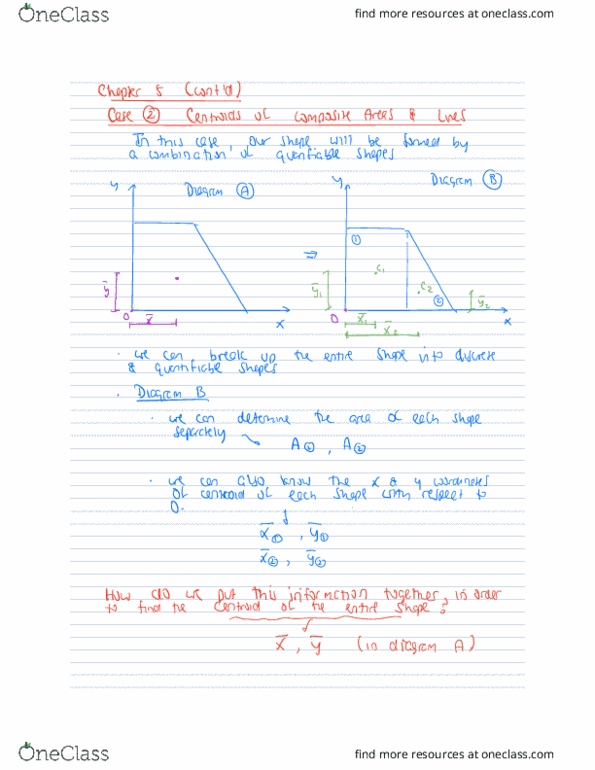 OneClass
find more resources at oneclass.com
Chapter 5 (cont'd)
Case ② Centroids of composite Areas & Lines
In this case, our shape will be formed by
a combination of quantifiable shapes
y Diagram Ⓐ
y Diagram Ⓑ
①
⇒
C₁
C₂
ȳ
ȳ₁
②
ȳ₂
O x̄ x
O x̄₁ x̄₂ x
· we can break up the entire shape into discrete
& quantifiable shapes
· Diagram B
· we can determine the area of each shape
separately
A① , A②
· we can also know the x & y coordinates
of centroid of each shape with respect to
O.
x̄① , ȳ①
x̄② , ȳ②
How do we put this information together, in order
to find the centroid of the entire shape?
x̄ , ȳ (in diagram A)
OneClass
find more resources at oneclass.com